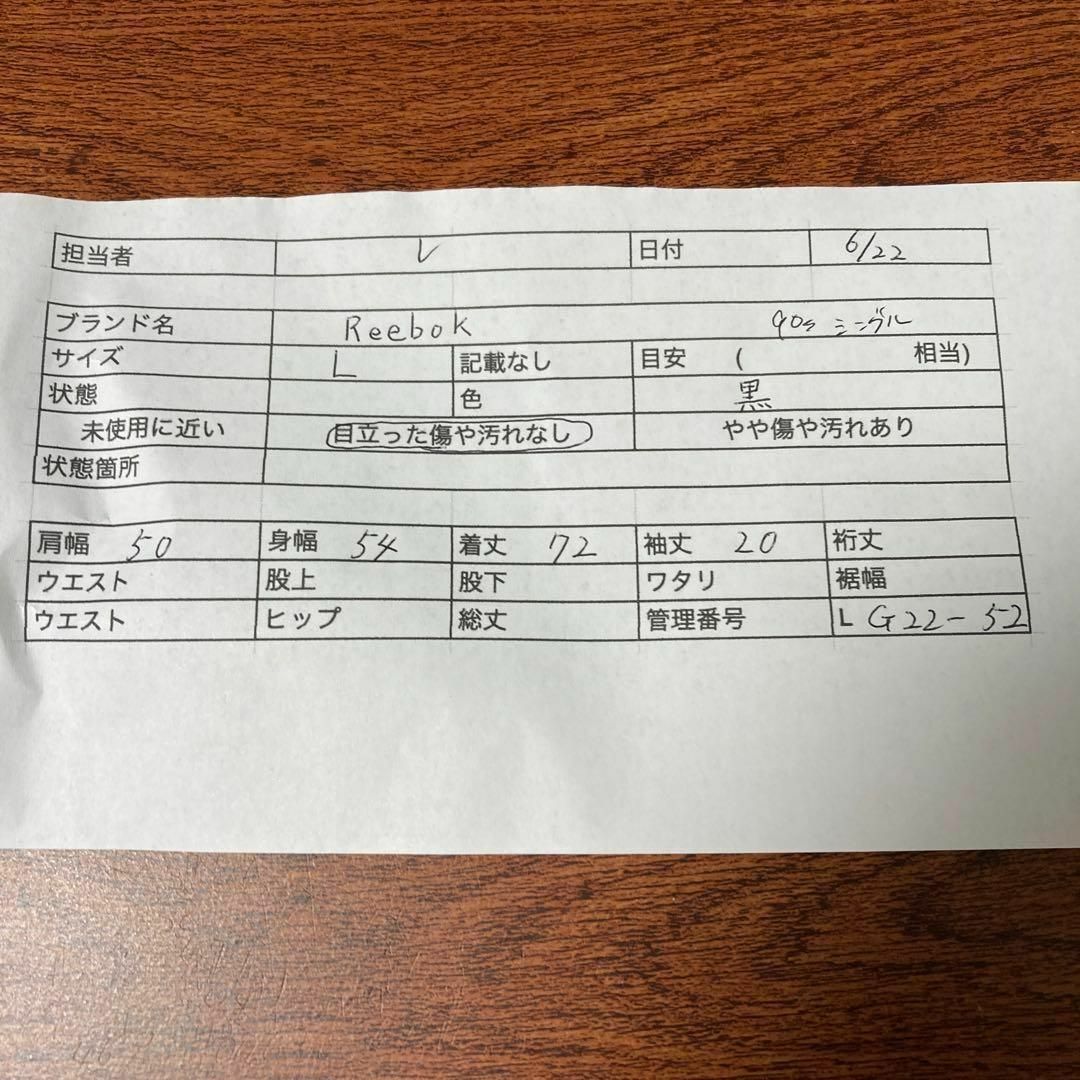 担当者 レ 日付 6/22
ブランド名 Reebok 90s シングル
サイズ L 記載なし 目安 ( 相当)
状態 色 黒
未使用に近い 目立った傷や汚れなし やや傷や汚れあり
状態箇所
肩幅 50 身幅 54 着丈 72 袖丈 20 裄丈
ウエスト 股上 股下 ワタリ 裾幅
ウエスト ヒップ 総丈 管理番号 L G22-52